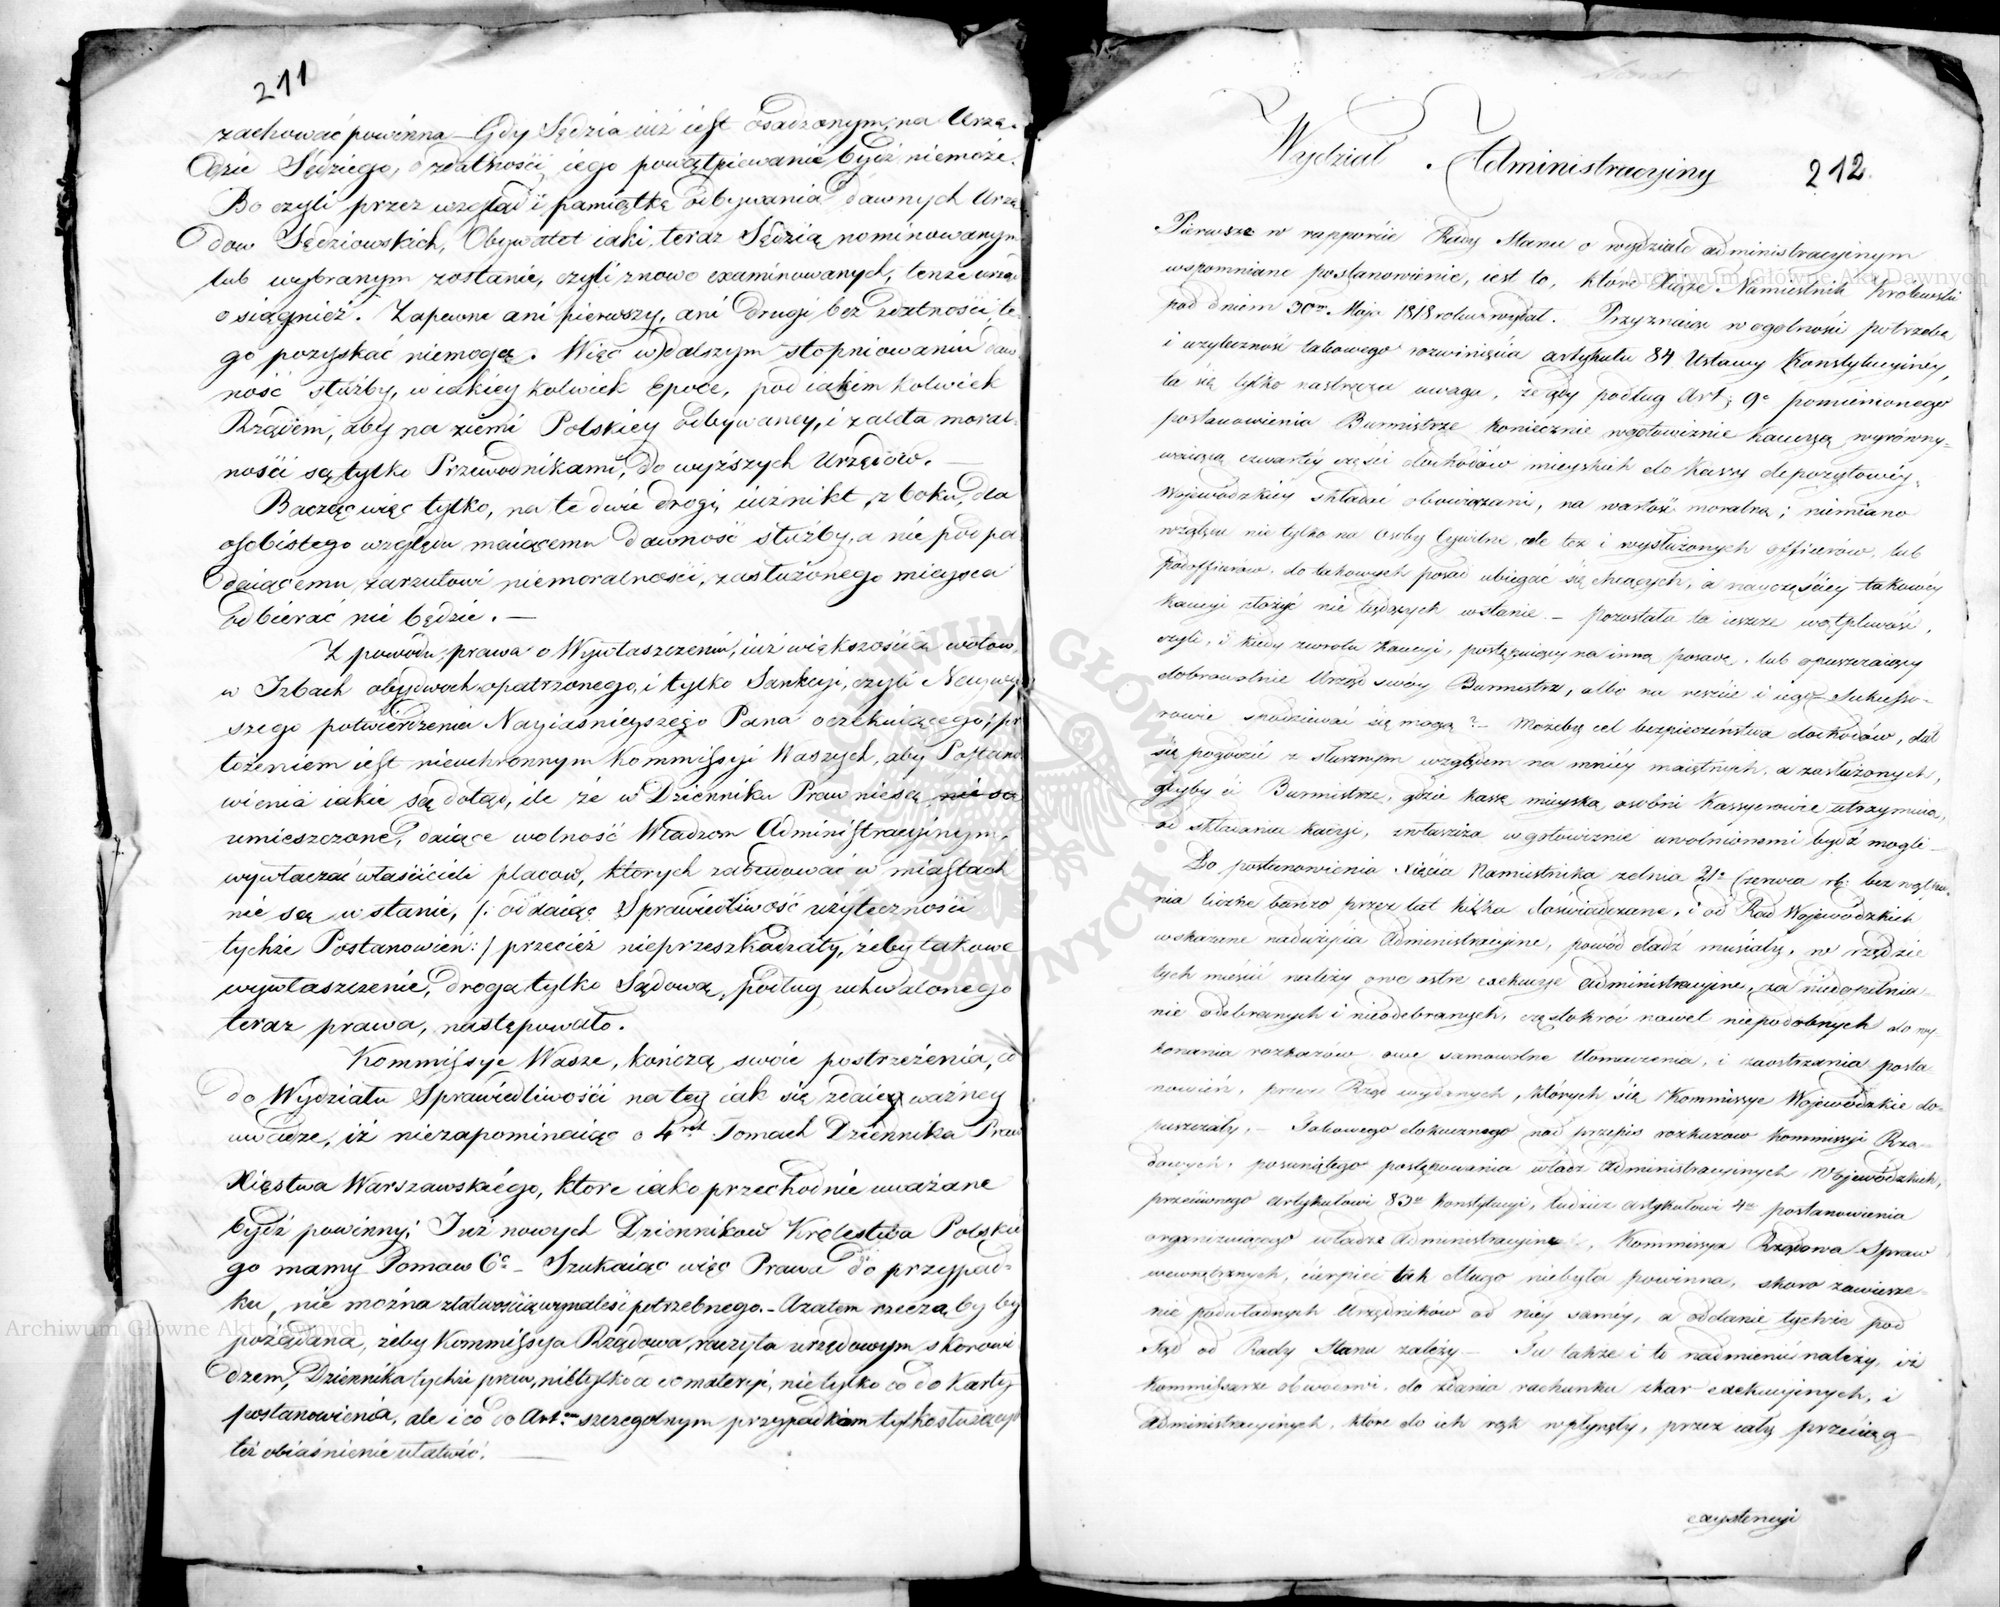 211
zachować powinna – Gdy Sędzia iuż iest osadzonym, na Urzę-
dzie Sędziego, o zdatności iego powątpiewanie bydź niemoże.
Bo czyli przez wzgląd i pamiątkę odbywania dawnych Urzę
dow Sędziowskich, Obywatel iaki, teraz Sędzią nominowanym
lub wybranym zostanie, czyli znowo examinowanych, tenże urząd
osiągnie. Zapewne ani pierwszy, ani drugi bez zdatności, te
go pozyskać niemogą. Więc w dalszym stopniowaniu daw
ność służby, w iakiey kolwiek Epoce, pod iakim kolwiek
Rządem, aby na ziemi Polskiey odbywaney, i zaleta moral-
ności są tylko Przewodnikami, do wyższych Urzędów. —
Bacząc więc tylko, na te dwie drogi, iuż nikt, z boku, dla
osobistego względu maiącemu dawność służby, a nie podpa
daiącemu zarzutowi niemoralności, zasłużonego mieysca
odbierać nie będzie. —
Z powodu prawa o Wywłaszczeniu, iuż większością wotow,
w Izbach obydwoch opatrzonego, i tylko Sankcyi, czyli Naywyż
szego potwierdzenia Nayiaśnieyszego Pana oczekuiącego; pr
łożeniem iest nieuchronnym Kommissyi Waszych, aby Postano
wienia iakie są dotąd, ile że w Dzienniku Praw nie są nie są
umieszczone, daiące wolność Władzom Administracyinym,
wywłaczać właścicieli placow, ktorych zabudować w miastach
nie są w stanie, /: oddaiąc Sprawiedliwość użyteczności
tychże Postanowień :/ przecież nieprzeszkadzały, żeby takowe
wywłaszczenie, drogą tylko Sądową, podług uchwalonego
teraz prawa, następowało.
Kommissye Wasze, kończą swoie postrzeżenia, co
do Wydziału Sprawiedliwości na tey iak się zdaie ważney
uwadze, iż niezapominaiąc o 4rech Tomach Dziennika Praw
Xięstwa Warszawskiego, ktore iako przechodnie uważane
bydź powinny; Już nowych Dziennikow Krolestwa Polskie
go mamy Tomow 6c – Szukaiąc więc Prawa do przypad-
ku, nie można z łatwością wynaleść potrzebnego. – Azatem rzeczą by by
pożądaną, żeby Kommissya Rządowa, raczyła urzędowym skorowi
dzem, Dziennika tychże praw, nietylko co do materyi, nietylko co do Karty
postanowienia, ale i co do Art. szczegolnym przypadkom tylko służący
też obiaśnienie ułatwić. —
212
Wydział Administracyiny
Pierwsze w rapporcie Rady Stanu o wydziale administracyinym
wspomniane postanowienie, iest to, ktore Xiąże Namiestnik Krolewski
pod dniem 30m Maja 1818 roku wydał. Przyznaiąc w ogolności potrzebę
i użyteczność takowego rozwinięcia artykułu 84 Ustawy Konstytucyiney,
ta się tylko nastręcza uwaga, że gdy podług Art: 9o pomienionego
postanowienia Burmistrze koniecznie w gotowiznie kaucyą wyrówny-
waiącą czwartey części dochodów mieyskich do Kassy depozytowey,
Wojewodzkiey składać obowiązani, na wartość moralną; niemiano
względu nie tylko na osoby Cywilne, ale też i wysłużonych officerów, lub
podofficerów, do takowych posad ubiegać się chcących, a nayczęściey takowey
kaucyi złożyć nie będących wstanie – pozostała ta ieszcze wątpliwość,
czyli, i kiedy zwrotu kaucyi, postępuiący na inną posadę, lub opuszczaiący
dobrowolnie Urząd swóy Burmistrz, albo na reszcie i iego Sukcesso-
rowie spodziewać się mogą? – Możeby cel bezpieczeństwa dochodów, dał
się pogodzić z słusznym względem na mniey maiętnych, a zasłużonych,
gdyby ci Burmistrze, gdzie kassę mieyską osobni Kassyerowie utrzymuią,
od składania kaucyi, zwłaszcza w gotowiznie uwolnionemi bydź mogli –
Do postanowienia Xięcia Namiestnika z dnia 21o Czerwca rb. bez wątpie-
nia liczne bardzo przez lat kilka doświadczane, i od Rad Wojewodzkich
wskazane nadużycia Administracyine, powód dadź musiały, w rzędzie
tych mieścić należy owe ostre exekucye administracyine, za niedopełnia-
nie odebranych i nieodebranych, częstokroć nawet niepodobnych do wy-
konania rozkazów, owe samowolne tłomaczenia, i zaostrzania posta
nowień, przez Rząd wydanych, których się Kommissye Wojewódzkie do-
puszczały. – Takowego dokucznego nad przepis rozkazow Kommissyi Rzą-
dowych, posuniętego postępowania władz Administracyinych Wojewódzkich,
przeciwnego artykułowi 83o Konstytucyi, tudzież artykułowi 4o postanowienia
organizuiącego władze administracyine, Kommissya Rządowa Spraw
wewnętrznych, cierpieć tak długo niebyła powinna, skoro zawiesze-
nie podwładnych Urzędników od niey samey, a oddanie tychże pod
Sąd od Rady Stanu zależy – Tu także i to nadmienić należy, iż
Kommissarze obwodowi, do zdania rachunku z kar exekucyinych, i
administracyinych, które do ich rąk wpłynęły, przez cały przeciąg
exystencyi
Archiwum Główne Akt Dawnych
Archiwum Główne Akt Dawnych
ARCHIWUM GŁÓWNE AKT DAWNYCH